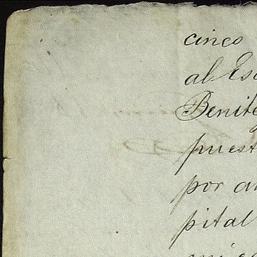 cinco
al Es
Benit
puest
por a
pital